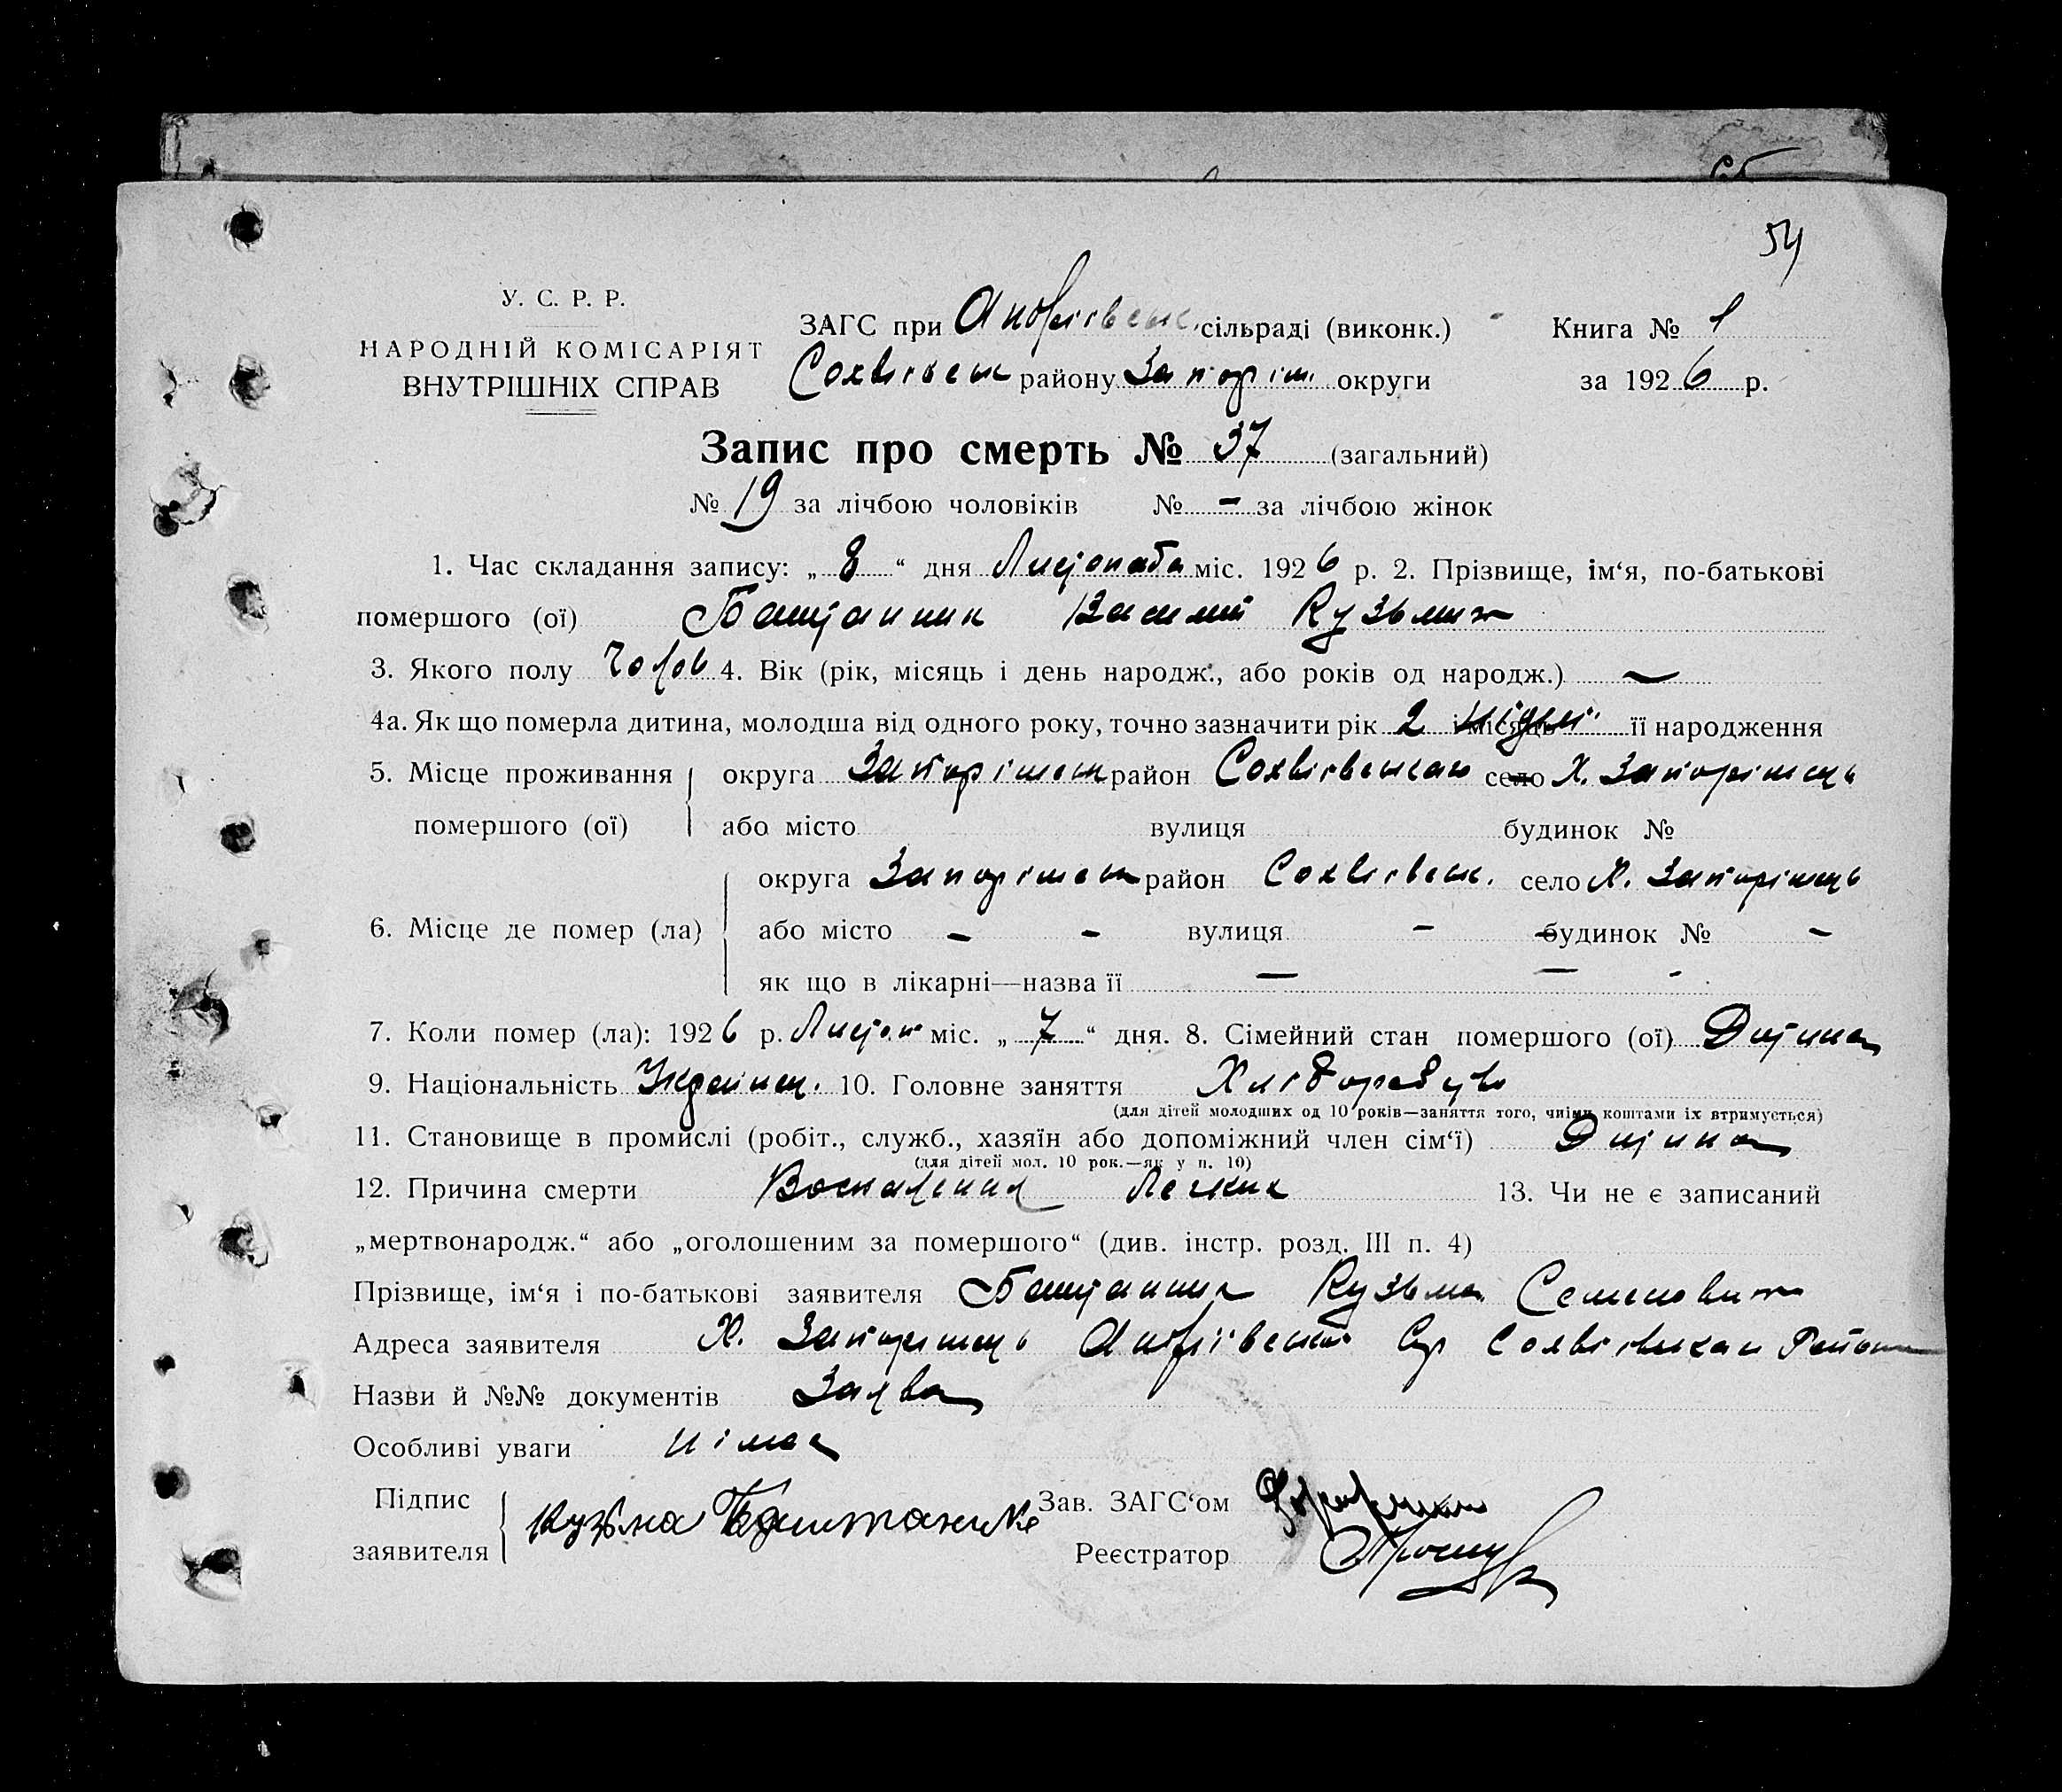 54
У. С. Р. Р.
НАРОДНІЙ КОМІСАРІЯТ
ВНУТРІШНІХ СПРАВ
ЗАГС при Андріївськ. сільраді (виконк.)
Софіївськ району Запоріж. округи
Книга № 1
за 1926 р.
Запис про смерть № 37 (загальний)
№ 19 за лічбою чоловіків № - за лічбою жінок
1. Час складання запису: „ 8 “ дня Листопада міс. 1926 р. 2. Прізвище, ім‘я, по-батькові
помершого (ої) Баштанник Василій Кузьмич
3. Якого полу Чолов 4. Вік (рік, місяць і день народж., або років од народж.) —
4а. Як що померла дитина, молодша від одного року, точно зазначити рік 2 і місяць неділі її народження
5. Місце проживання округа Запоріжськ район Софіївського село Х. Запоріжець
помершого (ої) або місто вулиця будинок №
округа Запоріжськ район Софіївськ. село Х. Запоріжець
6. Місце де помер (ла) або місто - - вулиця - - будинок № -
як що в лікарні—назва її — — -
7. Коли помер (ла): 1926 р. Листоп міс. „ 7 “ дня. 8. Сімейний стан помершого (ої) Дитина
9. Національність Українец. 10. Головне заняття Хлібороб
(для дітей молодших од 10 років—заняття того, чиїми коштами їх втримується)
11. Становище в промислі (робіт., служб., хазяїн або допоміжний член сім‘ї) Дитина
(для дітей мол. 10 рок.—як у п. 10)
12. Причина смерти Воспаления Легких 13. Чи не є записаний
„мертвонародж.“ або „оголошеним за помершого“ (див. інстр. розд. III п. 4)
Прізвище, ім‘я і по-батькові заявителя Баштанник Кузьма Семенович
Адреса заявителя Х. Запоріжець Андріївськ Ср Софіївського Району
Назви й №№ документів Заява
Особливі уваги німає
Підпис
заявителя Кузьма Баштаник
Зав. ЗАГС‘ом
Реєстратор